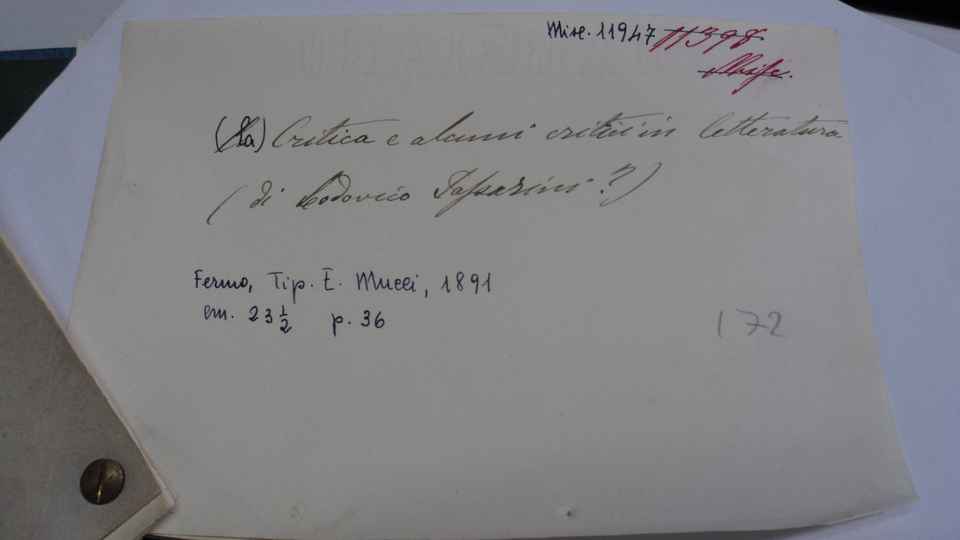 Misc. 11947 11398
(La) Critica e alcuni critici in letteratura
(di Lodovico Passarini?)
Fermo, Tip. E. Mucci, 1891
cm. 23 1/2 p. 36
172